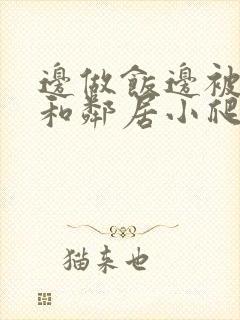 邊做飯邊被
和鄰居小爬
猫来也